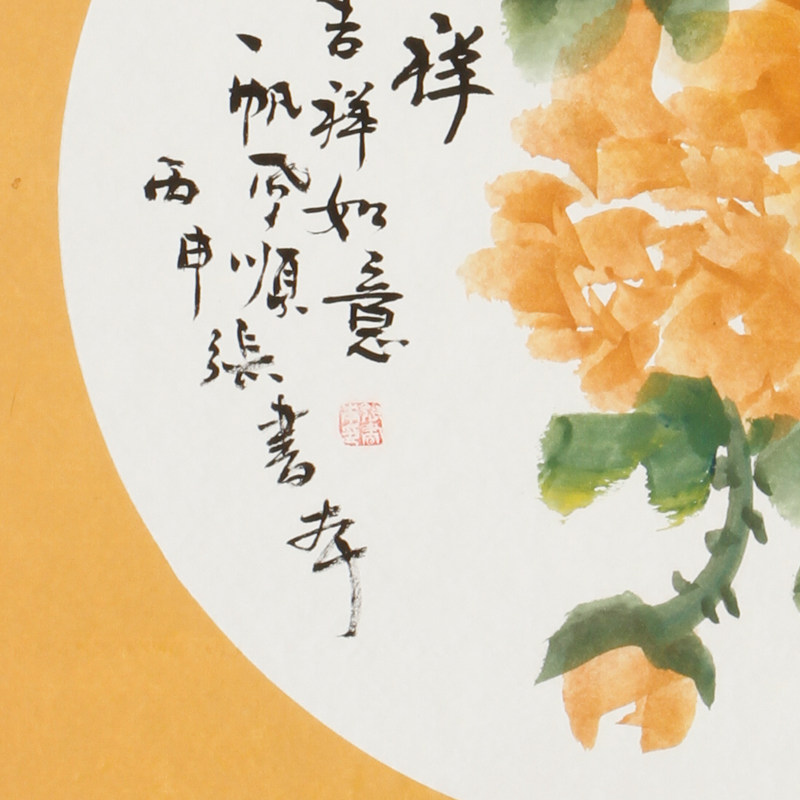 祥
吉祥如意
一帆风順
丙申張書孝